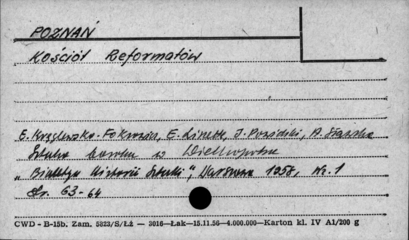 POZNAŃ
Kościół Reformatów
E. Linette, A. Sławska
Sztuka baroku w Wielkopolsce
„Biuletyn Historii Sztuki”, Warszawa 1958, Nr. 1
str. 63-64
CWD - B-15b, Zam. 5823/S/Łā — 3016—Łak—15.11.56—4.000.000—Karton kl. IV A1/200 g